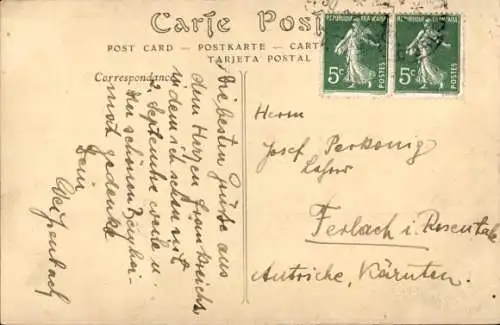 Carte Post
POST CARD - POSTKARTE - CART
TARJETA POSTAL
Correspondance
REPUBLIQUE FRANÇAISE
5c POSTES
REPUBLIQUE FRANÇAISE
5c POSTES
Die besten Grüße aus
dem Herzen Frankreichs
in dem ich schon seit
2. September weile u.
der schönen Berghei-
mat gedenke
Dein
Herrn
Josef Perkonig
Lehrer
Ferlach i. Rosental
Autriche, Kärnten.